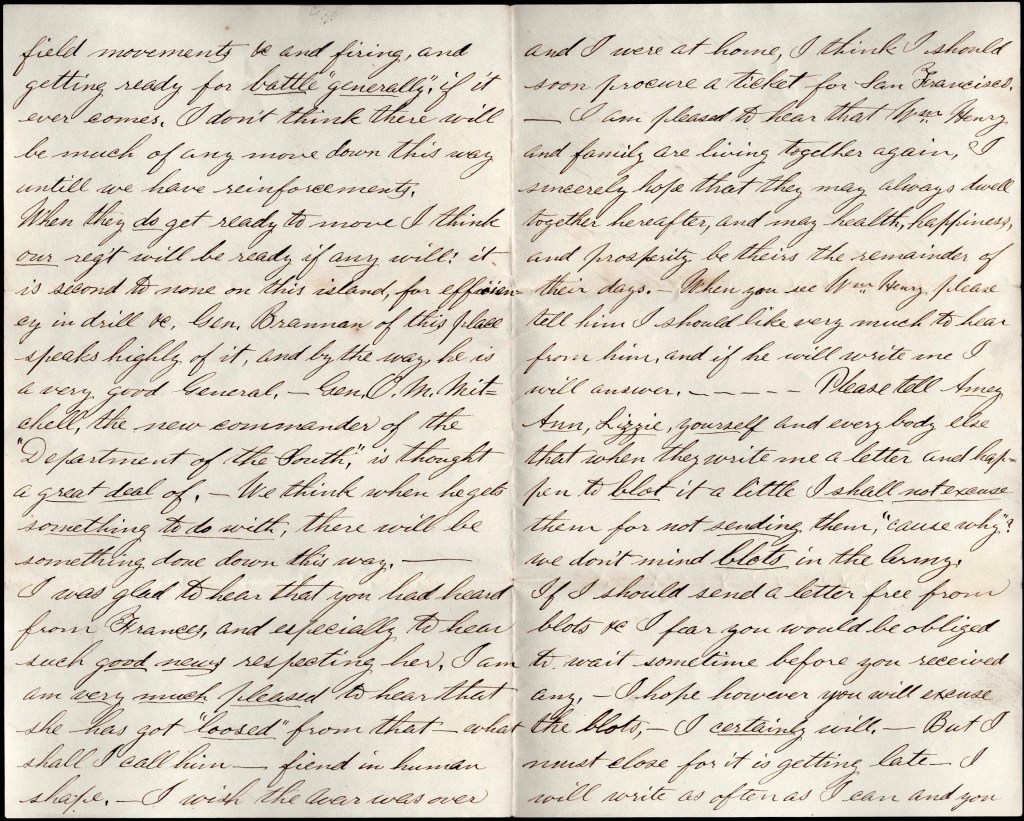 field movements &c and firing, and
getting ready for battle "generally", if it
ever comes. I don't think there will
be much of any move down this way
untill we have reinforcements.
When they do get ready to move I think
our regt will be ready if any will: it
is second to none on this island, for efficien
cy in drill &c. Gen. Brannan of this place
speaks highly of it, and by the way, he is
a very good General. — Gen. O. M. Mit=
chell, the new commander of the
"Department of the South," is thought
a great deal of. — We think when he gets
something to do with, there will be
something done down this way. —
I was glad to hear that you had heard
from Frances, and especially to hear
such good news respecting her. I am
am very much pleased to hear that
she has got "loosed" from that — what
shall I call him — fiend in human
shape. — I wish the war was over
and I were at home, I think I should
soon procure a ticket for San Francisco.
— I am pleased to hear that Wm Henry
and family are living together again, I
sincerely hope that they may always dwell
together hereafter, and may health, happiness,
and prosperity be theirs the remainder of
their days. — When you see Wm Henry please
tell him I should like very much to hear
from him, and if he will write me I
will answer. — — — — — Please tell Amey
Ann, Lizzie, yourself and everybody else
that when they write me a letter and hap-
pen to blot it a little I shall not excuse
them for not sending them, "cause why"?
we don't mind blots in the Army.
If I should send a letter free from
blots &c I fear you would be obliged
to wait sometime before you received
any. — I hope however you will excuse
the blots, — I certainly will. — But I
must close for it is getting late — I
will write as often as I can and you